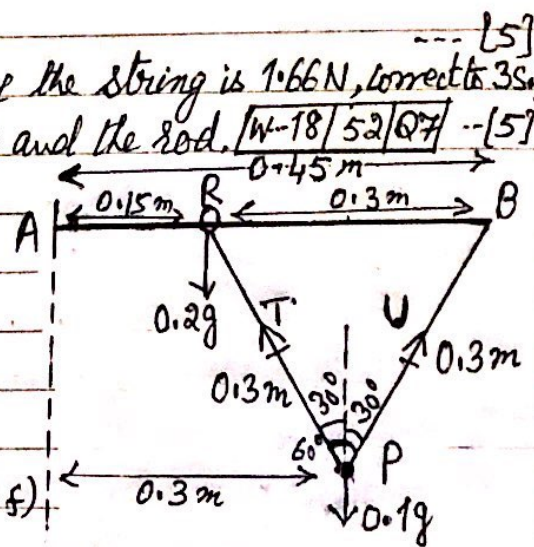 --- [5]
the string is 1.66N, correct to 3s.
and the rod. W-18 52 Q7 --[5]
0.45 m
0.15m R 0.3m B
A
0.2g T U
0.3m 30° 30° 0.3m
60° P
0.3 m
f)
0.1g